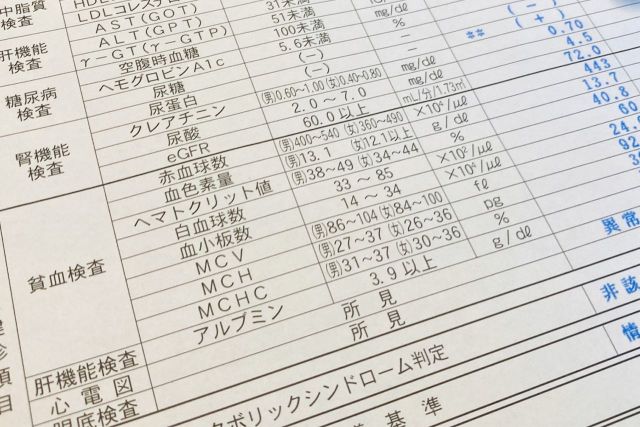 中脂質
検査
肝機能
検査
糖尿病
検査
腎機能
検査
貧血検査
肝機能検査
心電図
眼底検査
LDLコレステ
AST(GOT) 31未満
ALT(GPT) 51未満 mg/dℓ
γ-GT(γ-GTP) 100未満 %
空腹時血糖 5.6未満 - (-)
ヘモグロビンA1c (-) ** (+)
尿糖 (-) mg/dℓ 0.70
尿蛋白 (男)0.60~1.00 (女)0.40~0.80 mg/dℓ 4.5
クレアチニン 2.0 ~ 7.0 mL/分/1.73㎡ 72.0
尿酸 60.0以上 ×10⁴/μℓ 443
eGFR (男)400~540 (女)360~490 g/dℓ 13.7
赤血球数 (男)13.1 (女)12.1以上 % 40.8
血色素量 (男)38~49 (女)34~44 ×10²/μℓ
ヘマトクリット値 33 ~ 85
白血球数 14 ~ 34 fℓ
血小板数 (男)86~104 (女)84~100 pg
MCV (男)27~37 (女)26~36 %
MCH (男)31~37 (女)30~36 g/dℓ 異常
MCHC 3.9以上
アルブミン 所見
所見 非該
タボリックシンドローム判定 情
基準